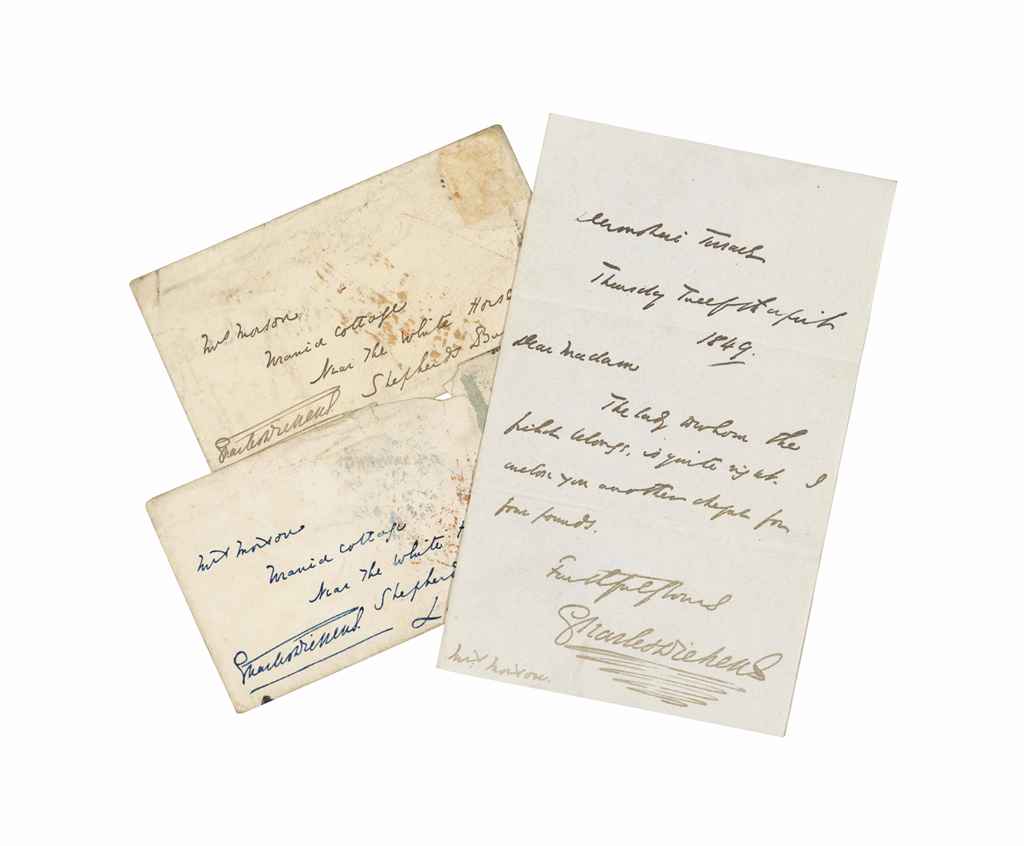 Mrs Morson
Urania Cottage
Near The White Horse
Shepherds Bu
Charles Dickens
Mrs Morson
Urania Cottage
Near The White H
Shepherds
L
Charles Dickens
Devonshire Terrace
Thursday Twelfth April
1849.
Dear Madam
The lady to whom the
belongs, is quite right. I
enclose you another cheque for
four pounds.
Faithfully Yours
Charles Dickens
Mrs Morson.